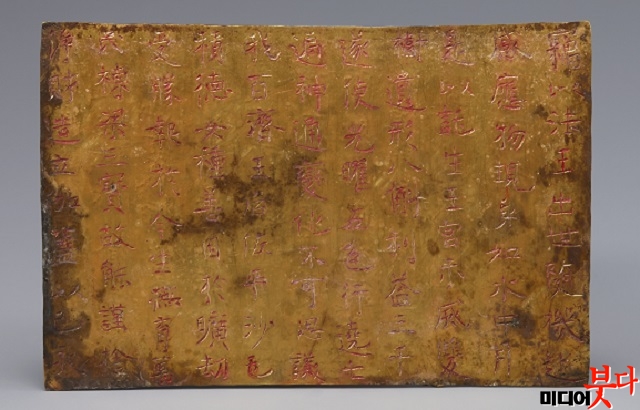 竊以法王出世隨機赴
感應物現身如水中月
是以託生王宮示滅雙
樹遺形八斛利益三千
遂使光曜五色行遶七
遍神通變化不可思議
我百濟王后佐平沙乇
積德女種善因於曠劫
受勝報於今生撫育萬
民棟梁三寶故能謹捨
淨財造立伽藍以己亥
미디어붓다